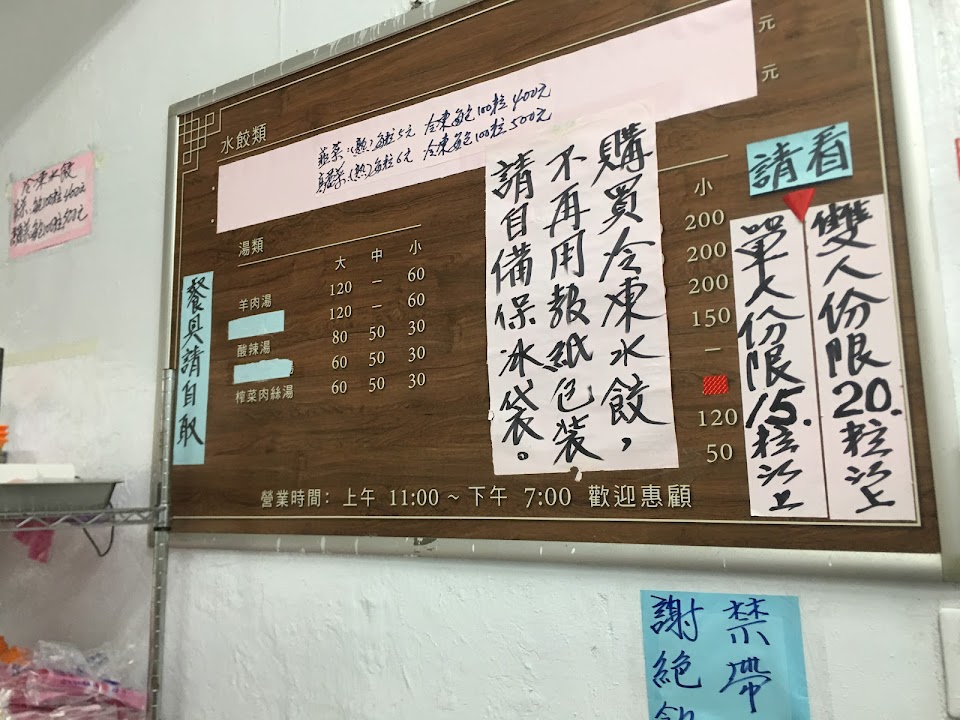 水餃類
韮菜(熟)每粒5元 冷凍每包100粒400元
高麗菜(熟)每粒6元 冷凍每包100粒500元
元
元
湯類
大 中 小
羊肉湯 120 — 60
120 — 60
酸辣湯 80 50 30
60 50 30
榨菜肉絲湯 60 50 30
小
200
200
200
150
—
120
50
營業時間: 上午 11:00 ~ 下午 7:00 歡迎惠顧
購買冷凍水餃,
不再用報紙包裝,
請自備保冰袋。
請看
雙人份限20.粒以上
單人份限15.粒以上
餐具請自取
冷凍水餃
每包100粒400元
每包100粒500元
禁帶
謝絕